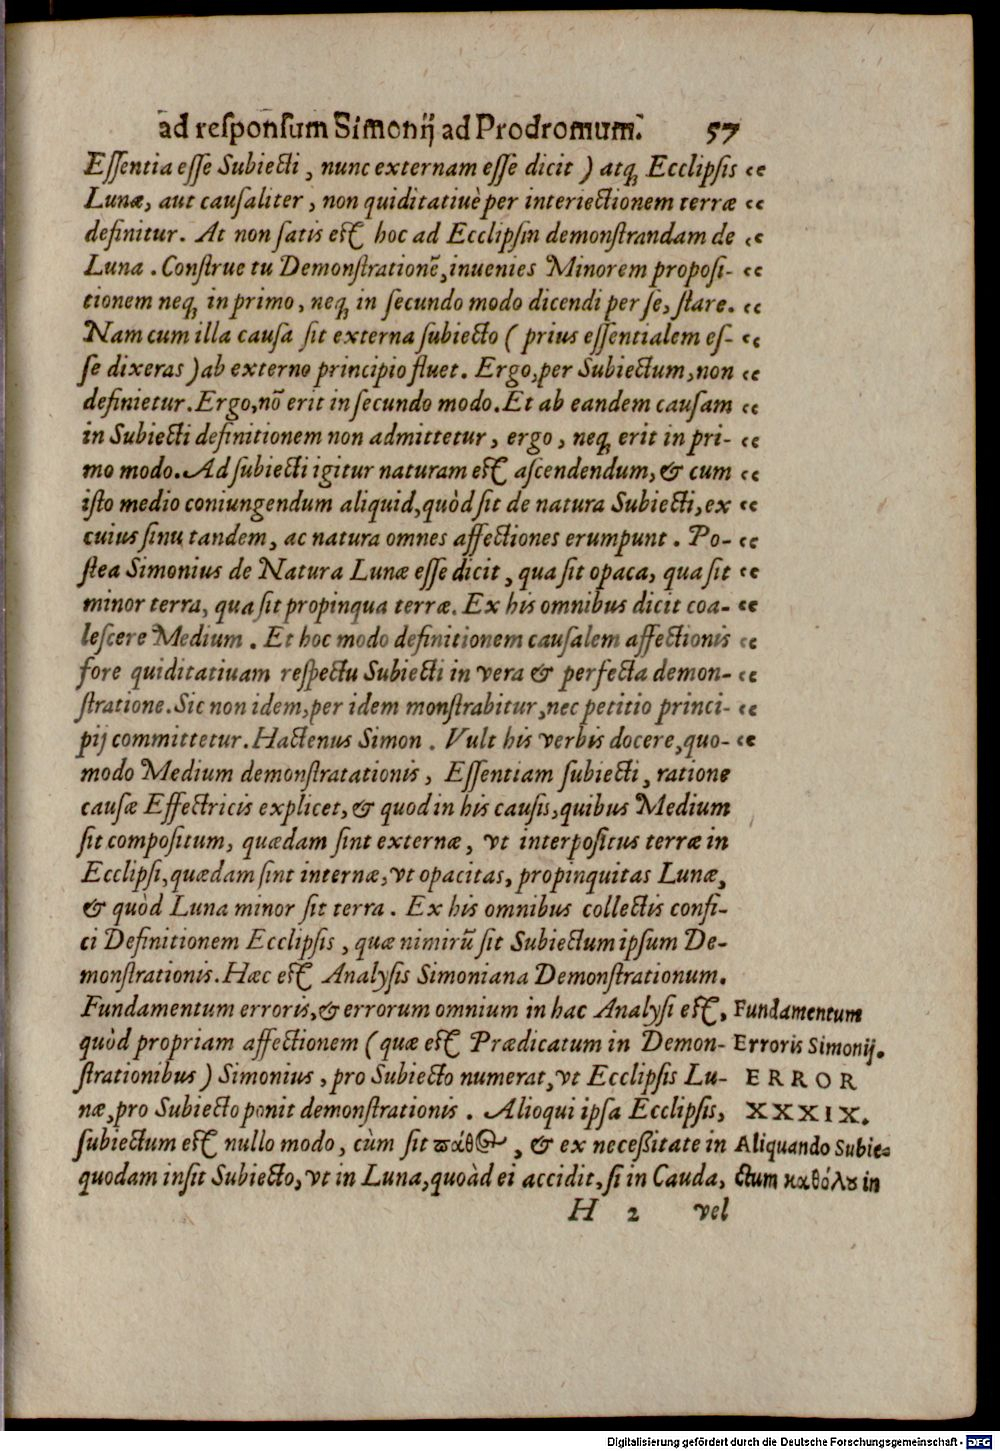 ad reſponſum Simonij ad Prodromum. 57
Eſſentia eſſe Subiecti, nunc externam eſſe dicit) atq; Ecclipſis “
Lunæ, aut cauſaliter, non quiditatiuè per interiectionem terræ “
definitur. At non ſatis eſt hoc ad Ecclipſin demonſtrandam de “
Luna. Conſtrue tu Demonſtrationē, inuenies Minorem propoſi- “
tionem neq; in primo, neq; in ſecundo modo dicendi per ſe, ſtare. “
Nam cum illa cauſa ſit externa ſubiecto (prius eſſentialem eſ- “
ſe dixeras) ab externo principio fluet. Ergo, per Subiectum, non “
definietur. Ergo, nō erit in ſecundo modo. Et ab eandem cauſam “
in Subiecti definitionem non admittetur, ergo, neq; erit in pri- “
mo modo. Ad ſubiecti igitur naturam eſt aſcendendum, & cum “
iſto medio coniungendum aliquid, quòd ſit de natura Subiecti, ex “
cuius ſinu tandem, ac natura omnes affectiones erumpunt. Po- “
ſtea Simonius de Natura Lunæ eſſe dicit, qua ſit opaca, qua ſit “
minor terra, qua ſit propinqua terræ. Ex his omnibus dicit coa- “
leſcere Medium. Et hoc modo definitionem cauſalem affectionis “
fore quiditatiuam reſpectu Subiecti in vera & perfecta demon- “
ſtratione. Sic non idem, per idem monſtrabitur, nec petitio princi- “
pij committetur. Hactenus Simon. Vult his verbis docere, quo- “
modo Medium demonſtratationis, Eſſentiam ſubiecti, ratione
cauſæ Effectricis explicet, & quod in his cauſis, quibus Medium
ſit compoſitum, quædam ſint externæ, vt interpoſitus terræ in
Ecclipſi, quædam ſint internæ, vt opacitas, propinquitas Lunæ,
& quòd Luna minor ſit terra. Ex his omnibus collectis confi-
ci Definitionem Ecclipſis, quæ nimirū ſit Subiectum ipſum De-
monſtrationis. Hæc eſt Analyſis Simoniana Demonſtrationum.
Fundamentum erroris, & errorum omnium in hac Analyſi eſt,
quòd propriam affectionem (quæ eſt Prædicatum in Demon-
ſtrationibus) Simonius, pro Subiecto numerat, vt Ecclipſis Lu-
næ, pro Subiecto ponit demonſtrationis. Alioqui ipſa Ecclipſis,
ſubiectum eſt nullo modo, cùm ſit ϖάθος, & ex neceſſitate in
quodam inſit Subiecto, vt in Luna, quoàd ei accidit, ſi in Cauda,
Fundamentum
Erroris Simonij.
ERROR
XXXIX.
Aliquando Subie-
ctum καθόλȣ in
H 2 vel
Digitalisierung gefördert durch die Deutsche Forschungsgemeinschaft - DFG